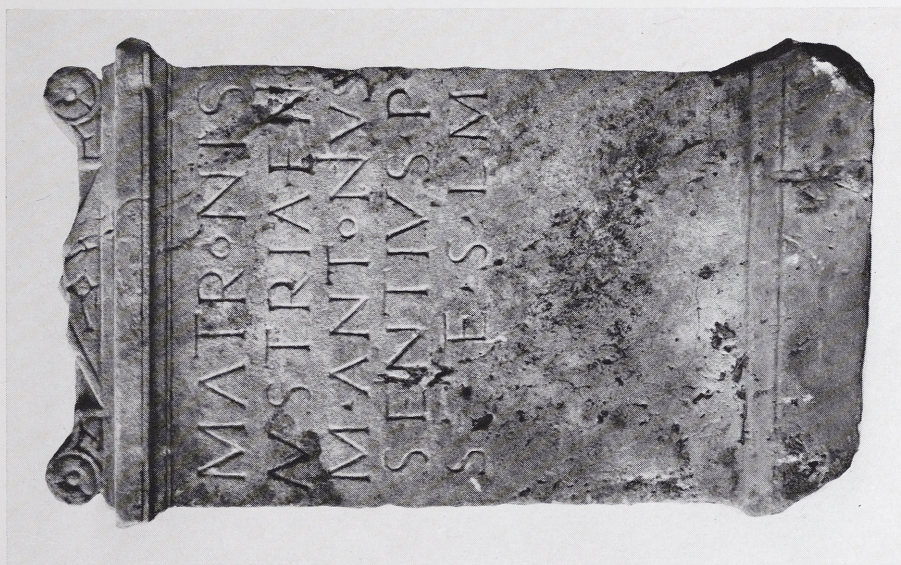 MATRONIS
AVSTRIAEN
M·ANTONIVS
SENTIVS·P
S E·S·L·M